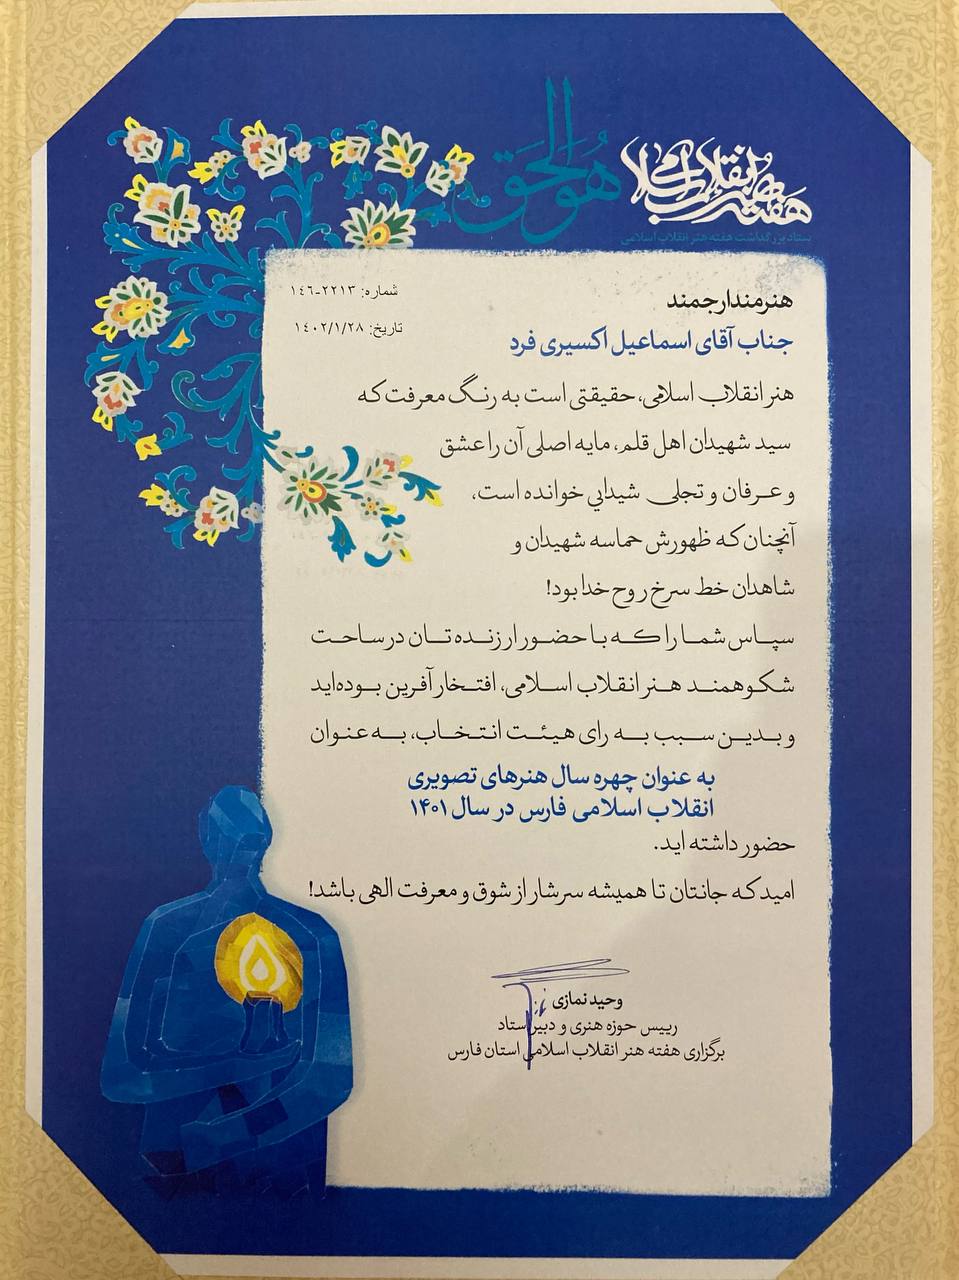 هو الحق
هفته هنر انقلاب اسلامی
ستاد بزرگداشت هفته هنر انقلاب اسلامی
شماره: ۲۲۱۳-۱۴۶
تاریخ: ۱۴۰۲/۱/۲۸
هنرمند ارجمند
جناب آقای اسماعیل اکسیری فرد
هنر انقلاب اسلامی، حقیقتی است به رنگ معرفت که
سید شهیدان اهل قلم، مایه اصلی آن را عشق
و عرفان و تجلی شیدایی خوانده است،
آنچنان که ظهورش حماسه شهیدان و
شاهدان خط سرخ روح خدا بود!
سپاس شما را که با حضور ارزنده تان در ساحت
شکوهمند هنر انقلاب اسلامی، افتخارآفرین بوده‌اید
و بدین سبب به رای هیئت انتخاب، به عنوان
به عنوان چهره سال هنرهای تصویری
انقلاب اسلامی فارس در سال ۱۴۰۱
حضور داشته اید.
امید که جانتان تا همیشه سرشار از شوق و معرفت الهی باشد!
وحید نمازی
رییس حوزه هنری و دبیر ستاد
برگزاری هفته هنر انقلاب اسلامی استان فارس